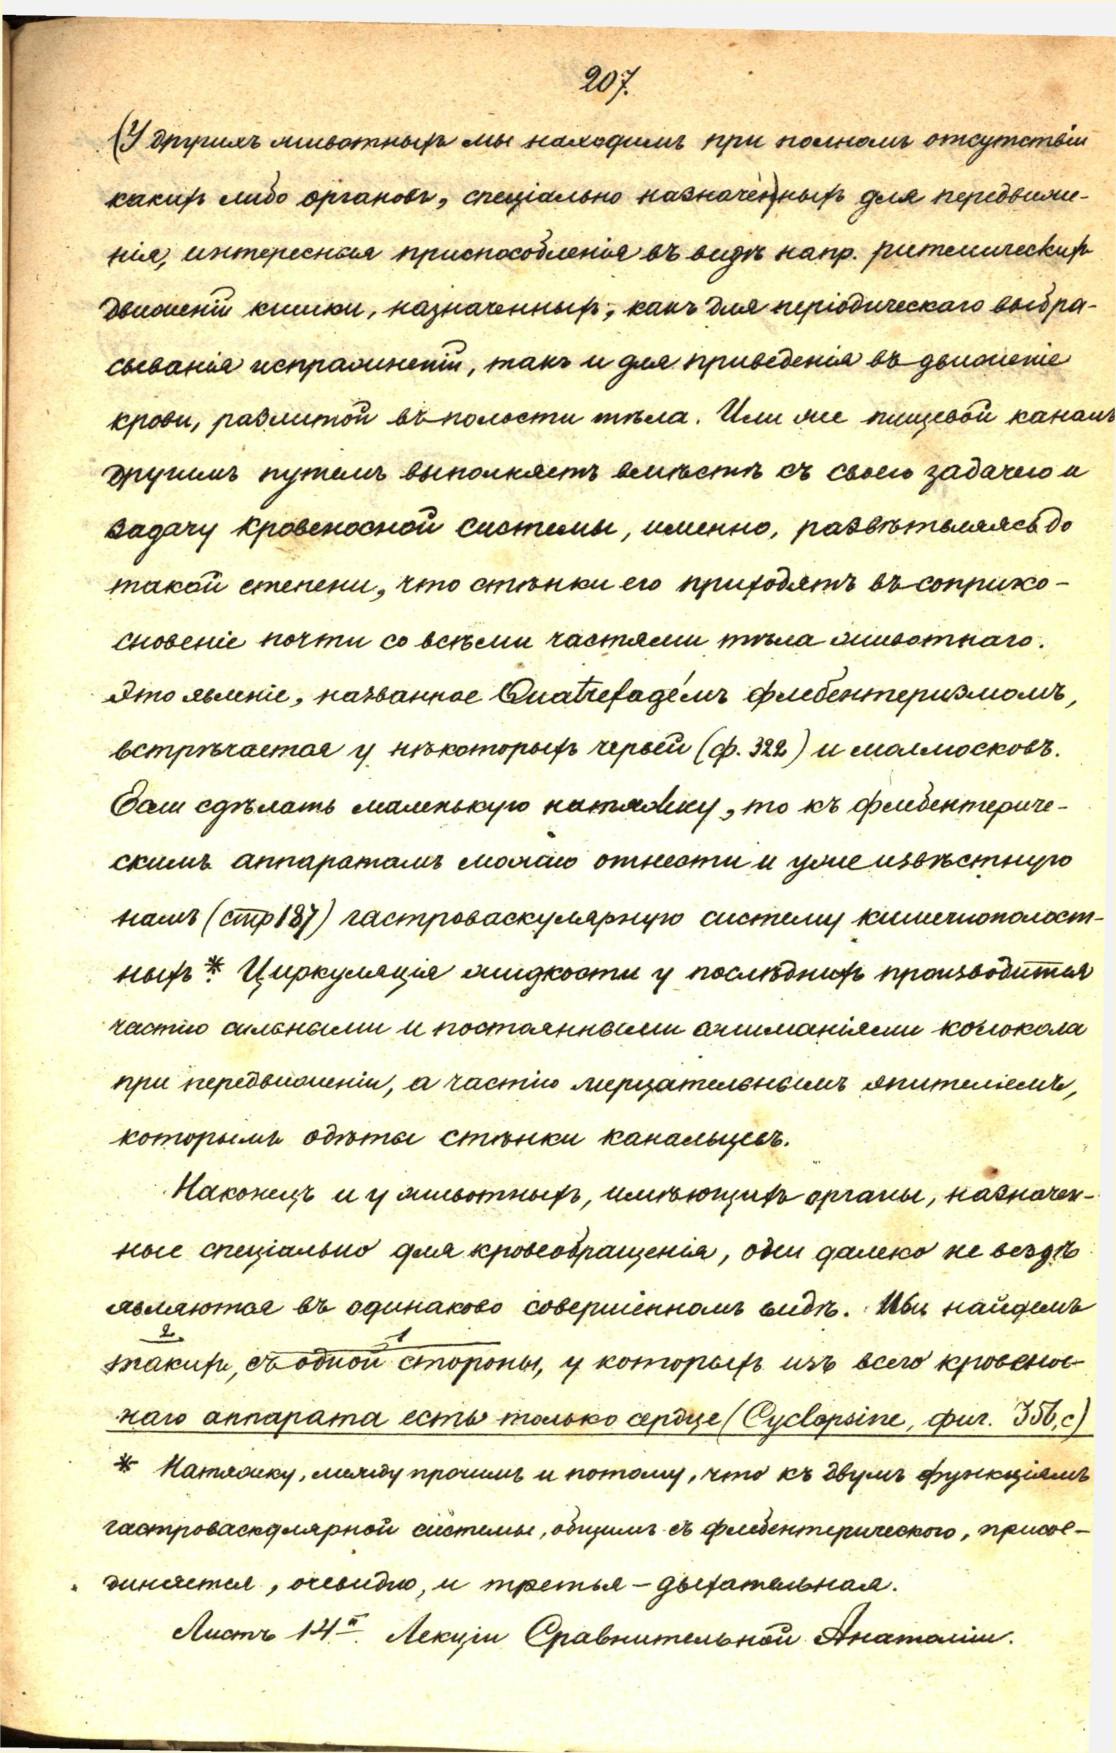 207.
(У другихъ животныхъ мы находимъ при полномъ отсутствіи
какихъ либо органовъ, спеціально назначен)ныхъ для передвиже-
нія, интересныя приспособленія въ видѣ напр. ритмическихъ
движеній кишки, назначенныхъ, какъ для періодическаго выбра-
сыванія испражненій, такъ и для приведенія въ движеніе
крови, разлитой въ полости тѣла. Или же пищевой каналъ
другимъ путемъ выполняетъ вмѣстѣ съ своею задачею и
задачу кровеносной системы, именно, развѣтвляясь до
такой степени, что стѣнки его приходятъ въ соприко-
сновеніе почти со всѣми частями тѣла животнаго.
Это явленіе, названное Quatrefage'мъ флебентеризмомъ,
встрѣчается у нѣкоторыхъ червей (ф. 322) и моллюсковъ.
Если сдѣлать маленькую натяжку, то къ флебентериче-
скимъ аппаратамъ можно отнести и уже извѣстную
намъ (стр 187) гастроваскулярную систему кишечнополост-
ныхъ.* Циркуляція жидкости у послѣднихъ производится
частію сильными и постоянными сжиманіями колокола
при передвиженіи, а частію мерцательнымъ эпителіемъ,
которымъ одѣты стѣнки канальцевъ.
Наконецъ и у животныхъ, имѣющихъ органы, назначен-
ные спеціально для кровеобращенія, они далеко не вездѣ
являются въ одинаково совершенномъ видѣ. Мы найдемъ
2 1
такихъ, съ одной стороны, у которыхъ изъ всего кровенос-
наго аппарата есть только сердце (Cyclopsine, фиг. 356, c)
* Натяжку, между прочимъ и потому, что къ двумъ функціямъ
гастроваскулярной системы, общимъ съ флебентерического, присое-
диняется, очевидно, и третья – дыхательная.
Листъ 14й. Лекціи Сравнительной Анатоміи.